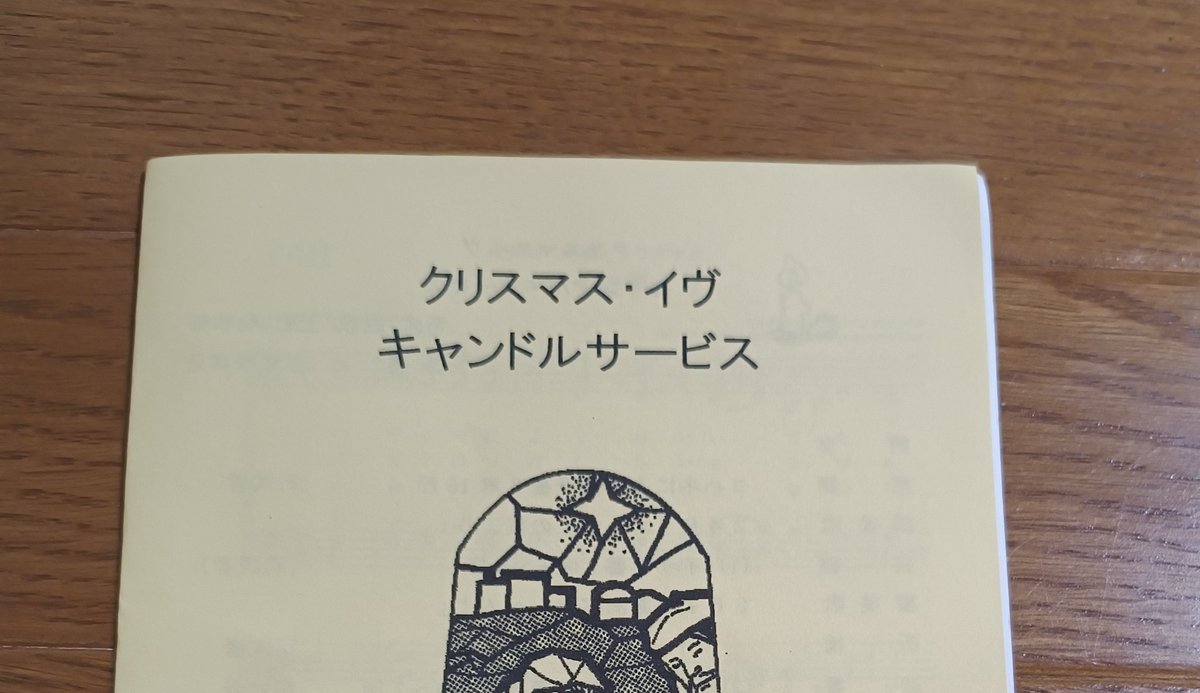 クリスマス・イヴ
キャンドルサービス